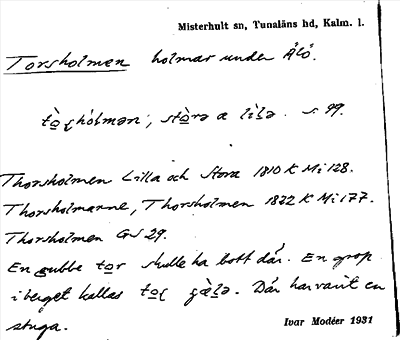 Misterhult sn, Tunaläns hd, Kalm. l.
Torsholmen holmar under Ålö.
tò̱ʂhólmən; stò̱rə æ lì̱lə. s. 99.
Thorsholmen Lilla och Stora 1810 K Mi 128.
Thorsholmarne, Thorsholmen 1822 K Mi 177.
Thorsholmen GS 29.
En gubbe to̱r skulle ha bott där. En grop
i berget kallas to̱ʂ gæ̱lə. Där har varit en
stuga.
Ivar Modéer 1931